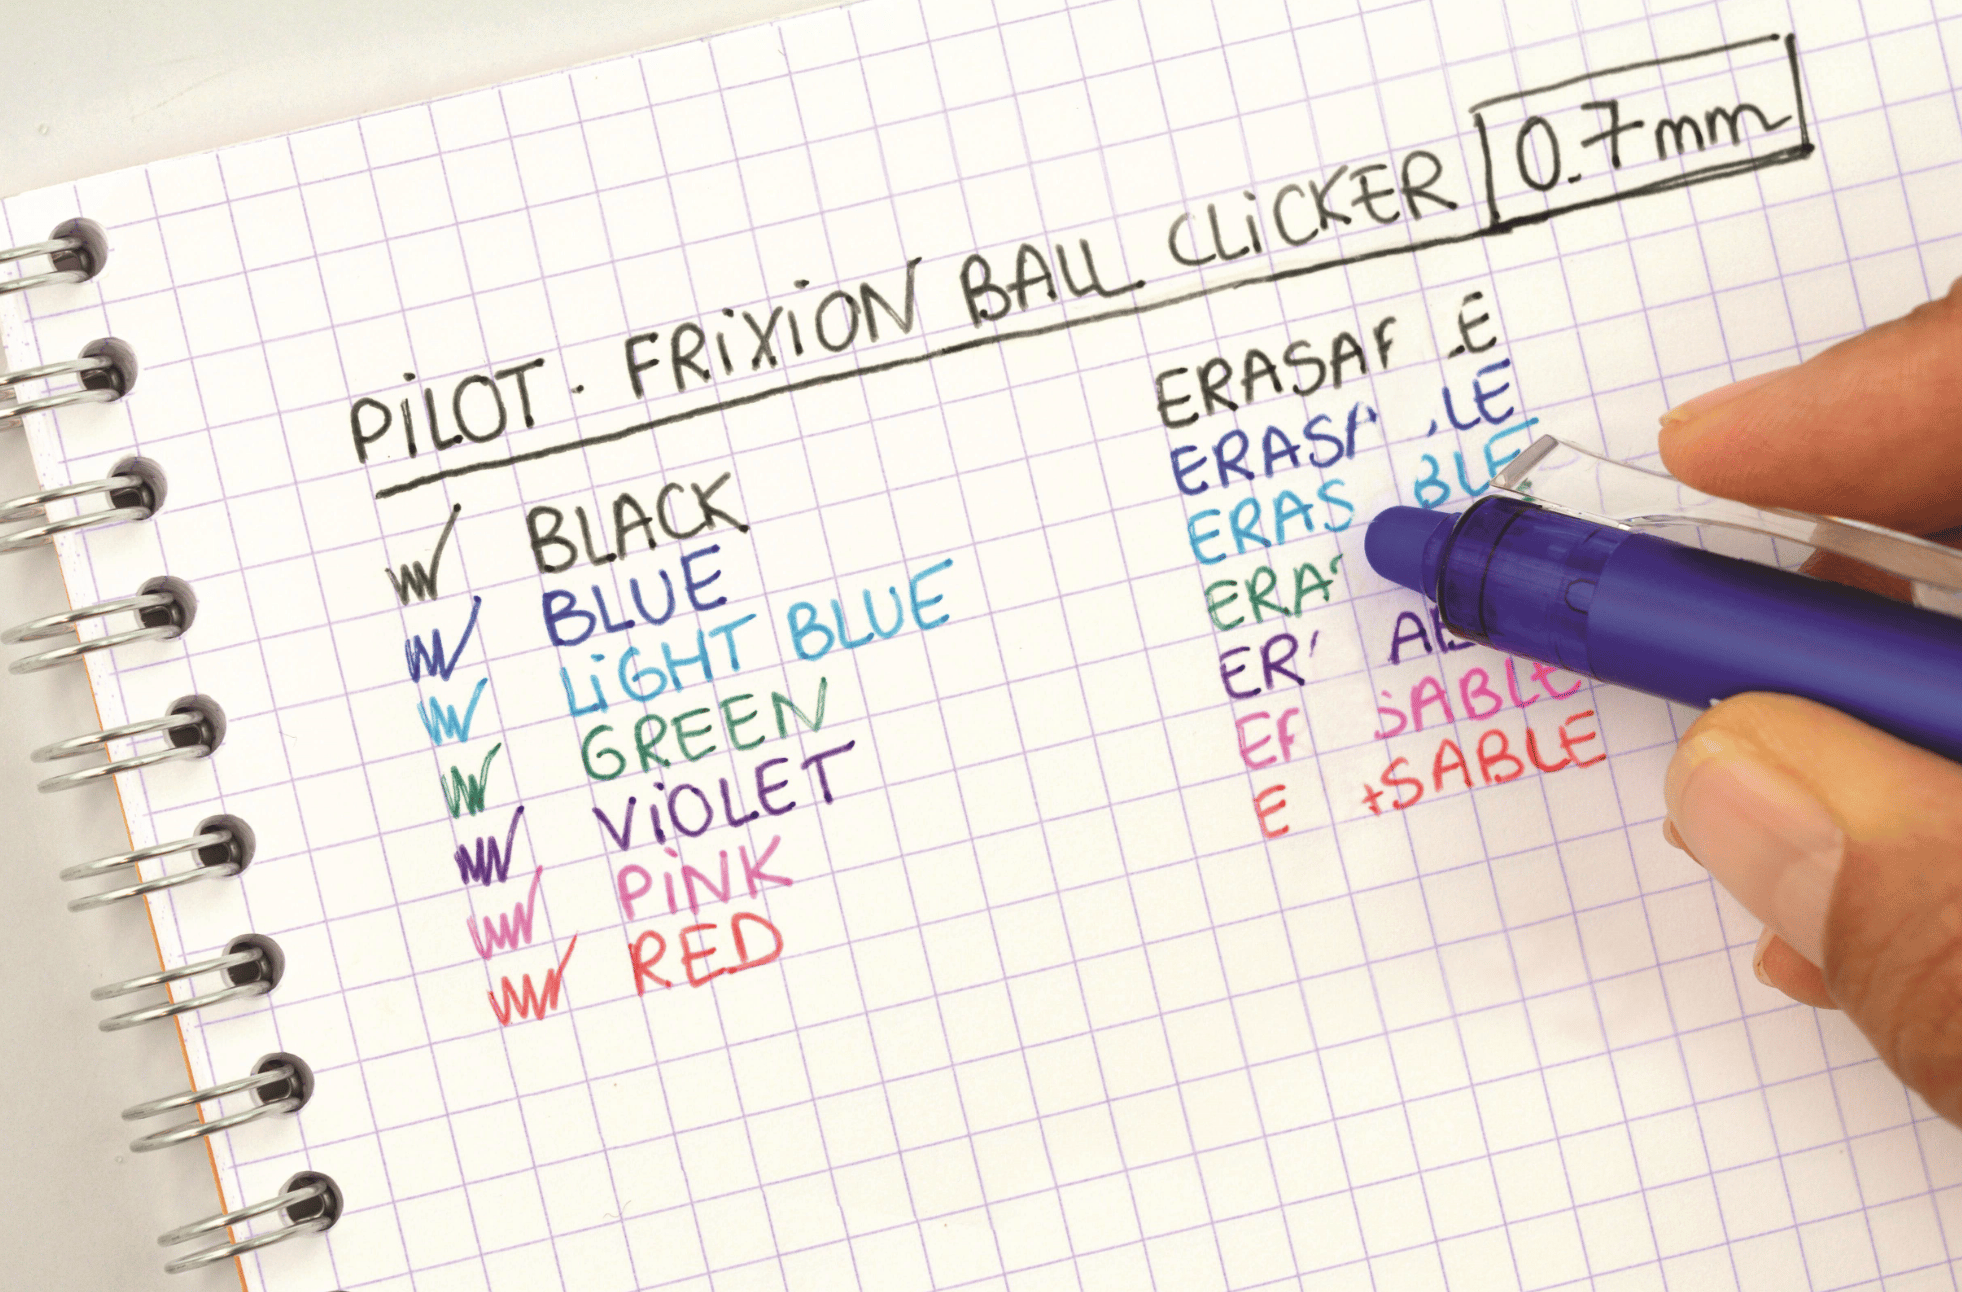 PiLOT. FRiXiON BALL CLiCKER 0.7mm
BLACK
BLUE
LiGHT BLUE
GREEN
ViOLET
PiNK
RED
ERASA E
ERASA LE
ERAS BLE
ERAS
ER AB
ER SABLE
E ASABLE